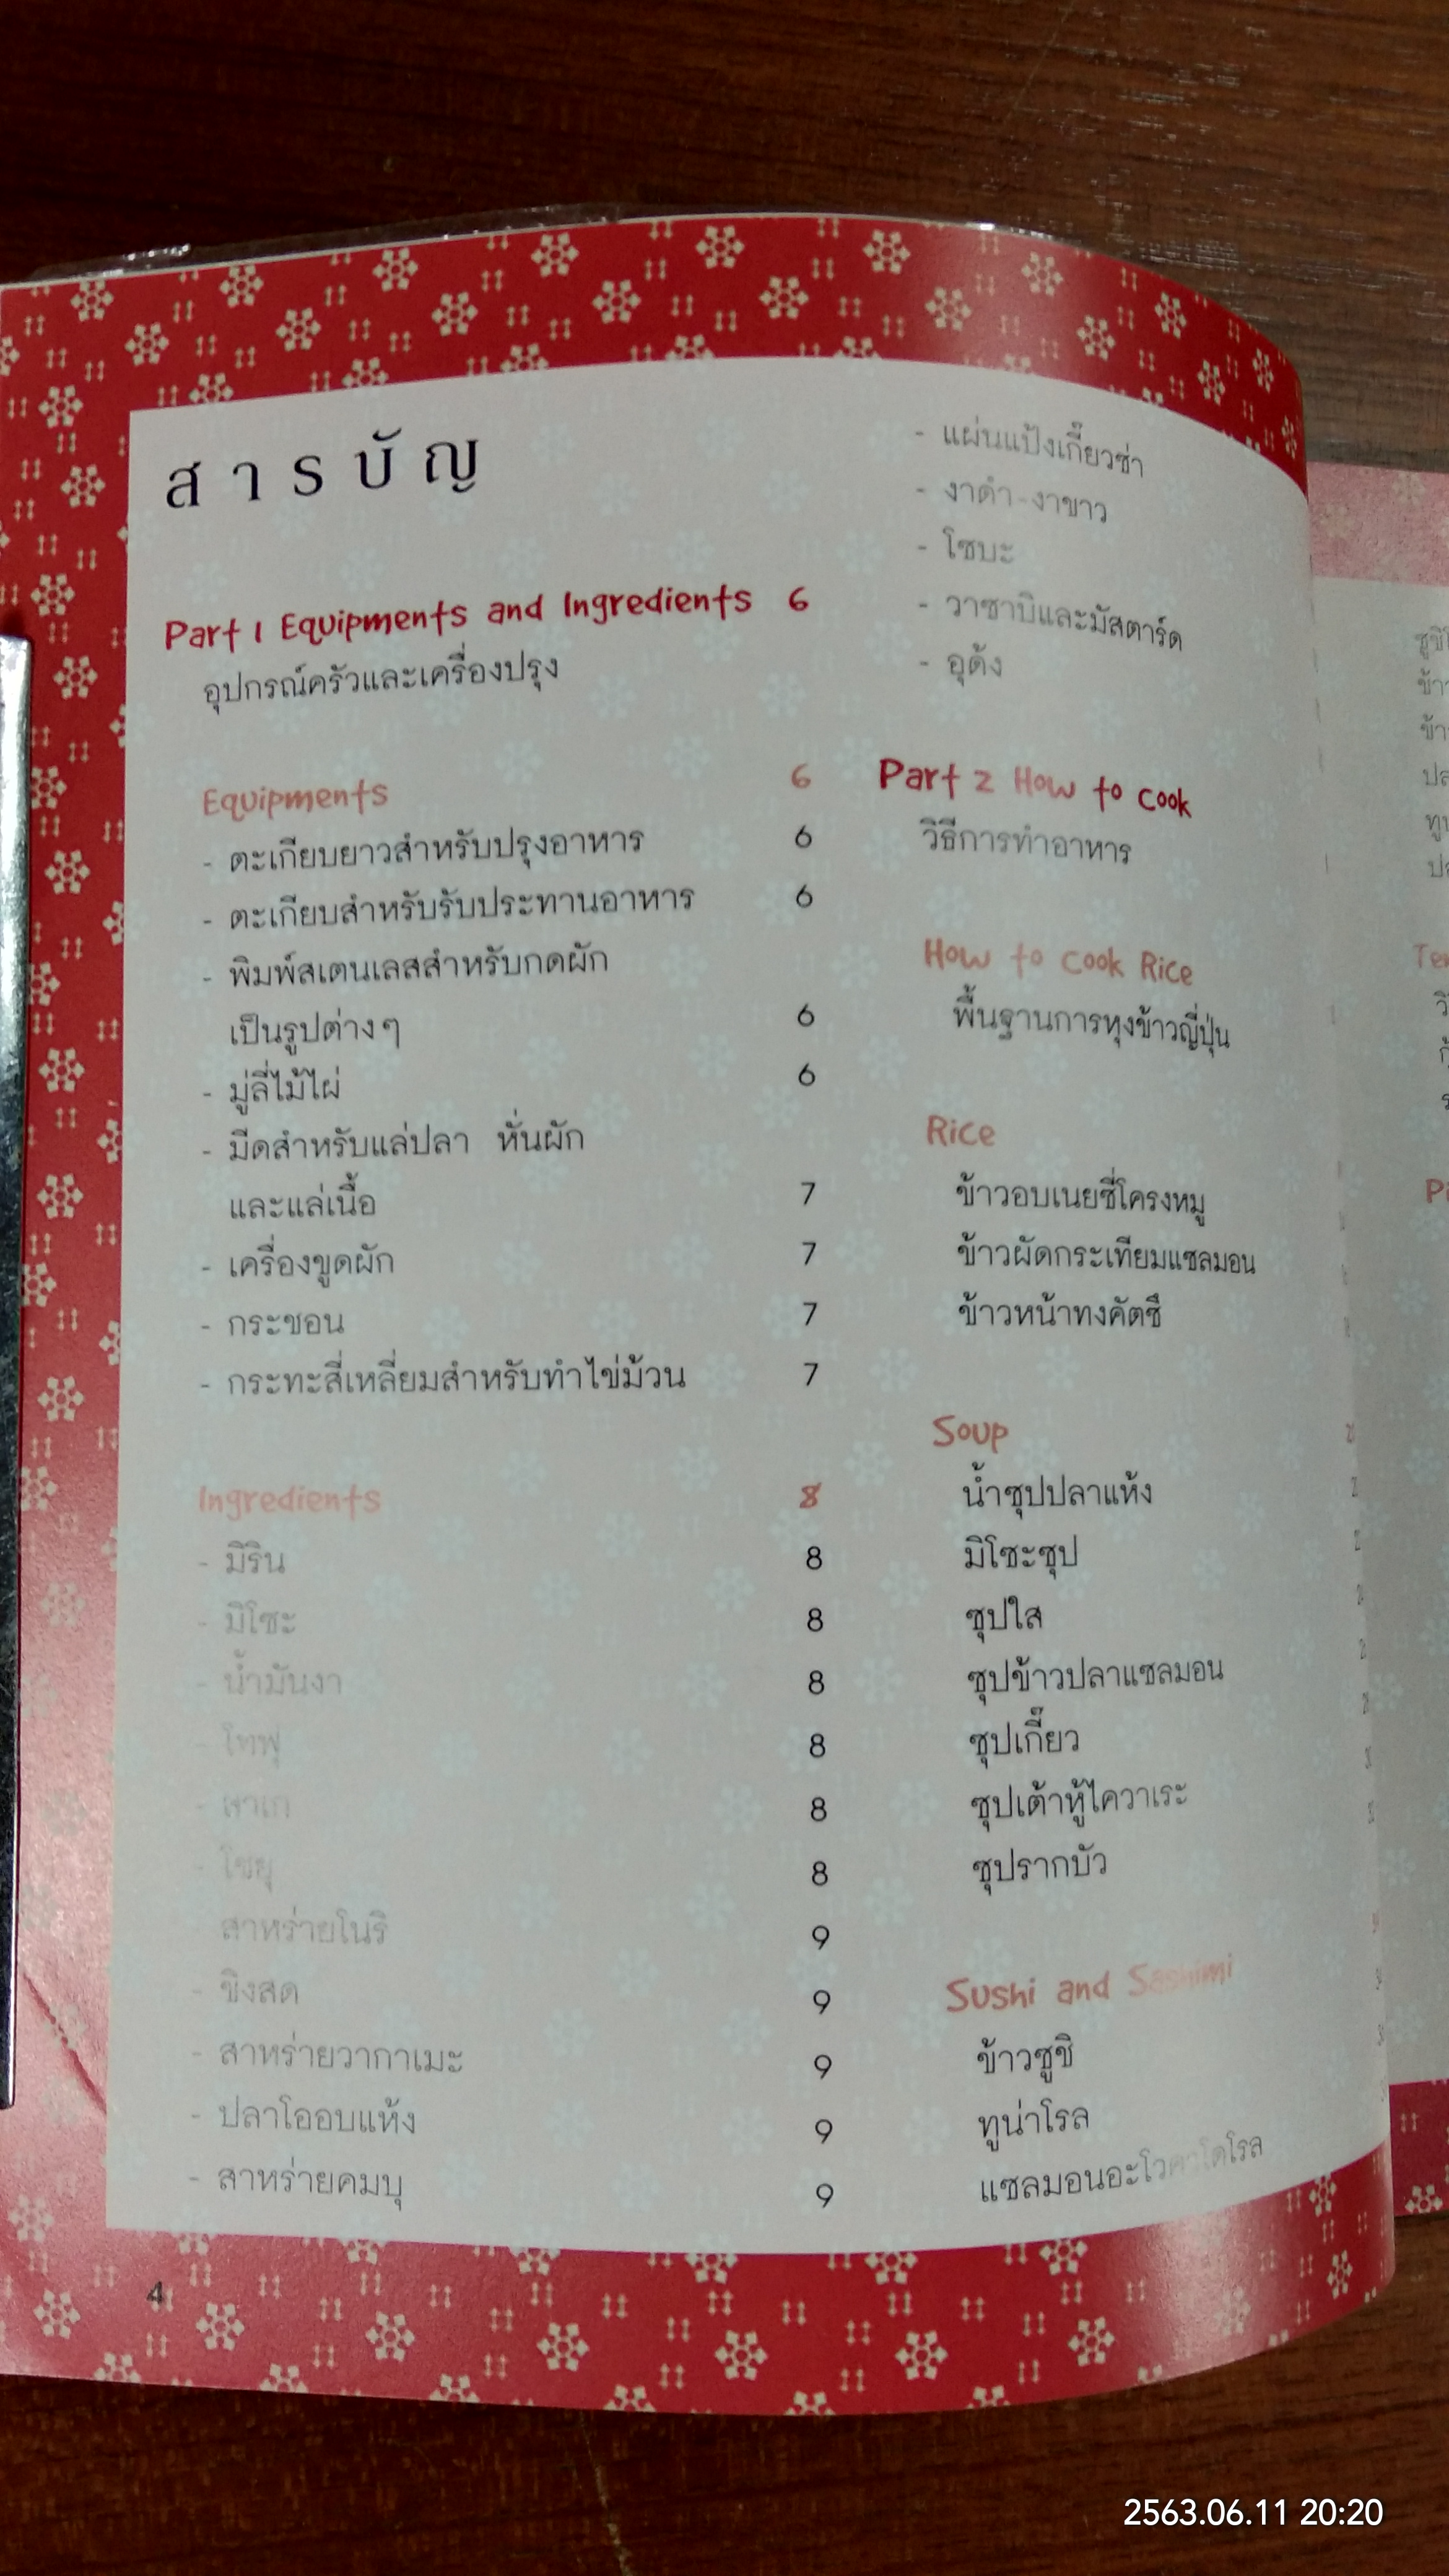 สารบัญ
Part 1 Equipments and Ingredients 6
อุปกรณ์ครัวและเครื่องปรุง
Equipments 6
- ตะเกียบยาวสำหรับปรุงอาหาร 6
- ตะเกียบสำหรับรับประทานอาหาร 6
- พิมพ์สเตนเลสสำหรับกดผัก
เป็นรูปต่างๆ 6
- มู่ลี่ไม้ไผ่ 6
- มีดสำหรับแล่ปลา หั่นผัก
และแล่เนื้อ 7
- เครื่องขูดผัก 7
- กระชอน 7
- กระทะสี่เหลี่ยมสำหรับทำไข่ม้วน 7
Ingredients 8
- มิริน 8
- มิโซะ 8
- น้ำมันงา 8
- โทฟุ 8
- สาเก 8
- โชยุ 8
สาหร่ายโนริ 9
- ขิงสด 9
- สาหร่ายวากาเมะ 9
- ปลาโออบแห้ง 9
- สาหร่ายคมบุ 9
- แผ่นแป้งเกี๊ยวซ่า
- งาดำ-งาขาว
- โซบะ
- วาซาบิและมัสตาร์ด
- อุด้ง
Part 2 How to cook
วิธีการทำอาหาร
How to cook Rice
พื้นฐานการหุงข้าวญี่ปุ่น
Rice
ข้าวอบเนยซี่โครงหมู
ข้าวผัดกระเทียมแซลมอน
ข้าวหน้าทงคัตซึ
Soup
น้ำซุปปลาแห้ง
มิโซะซุป
ซุปใส
ซุปข้าวปลาแซลมอน
ซุปเกี๊ยว
ซุปเต้าหู้ไควาเระ
ซุปรากบัว
Sushi and Sashimi
ข้าวซูชิ
ทูน่าโรล
แซลมอนอะโวคาโดโรล
4
2563.06.11 20:20